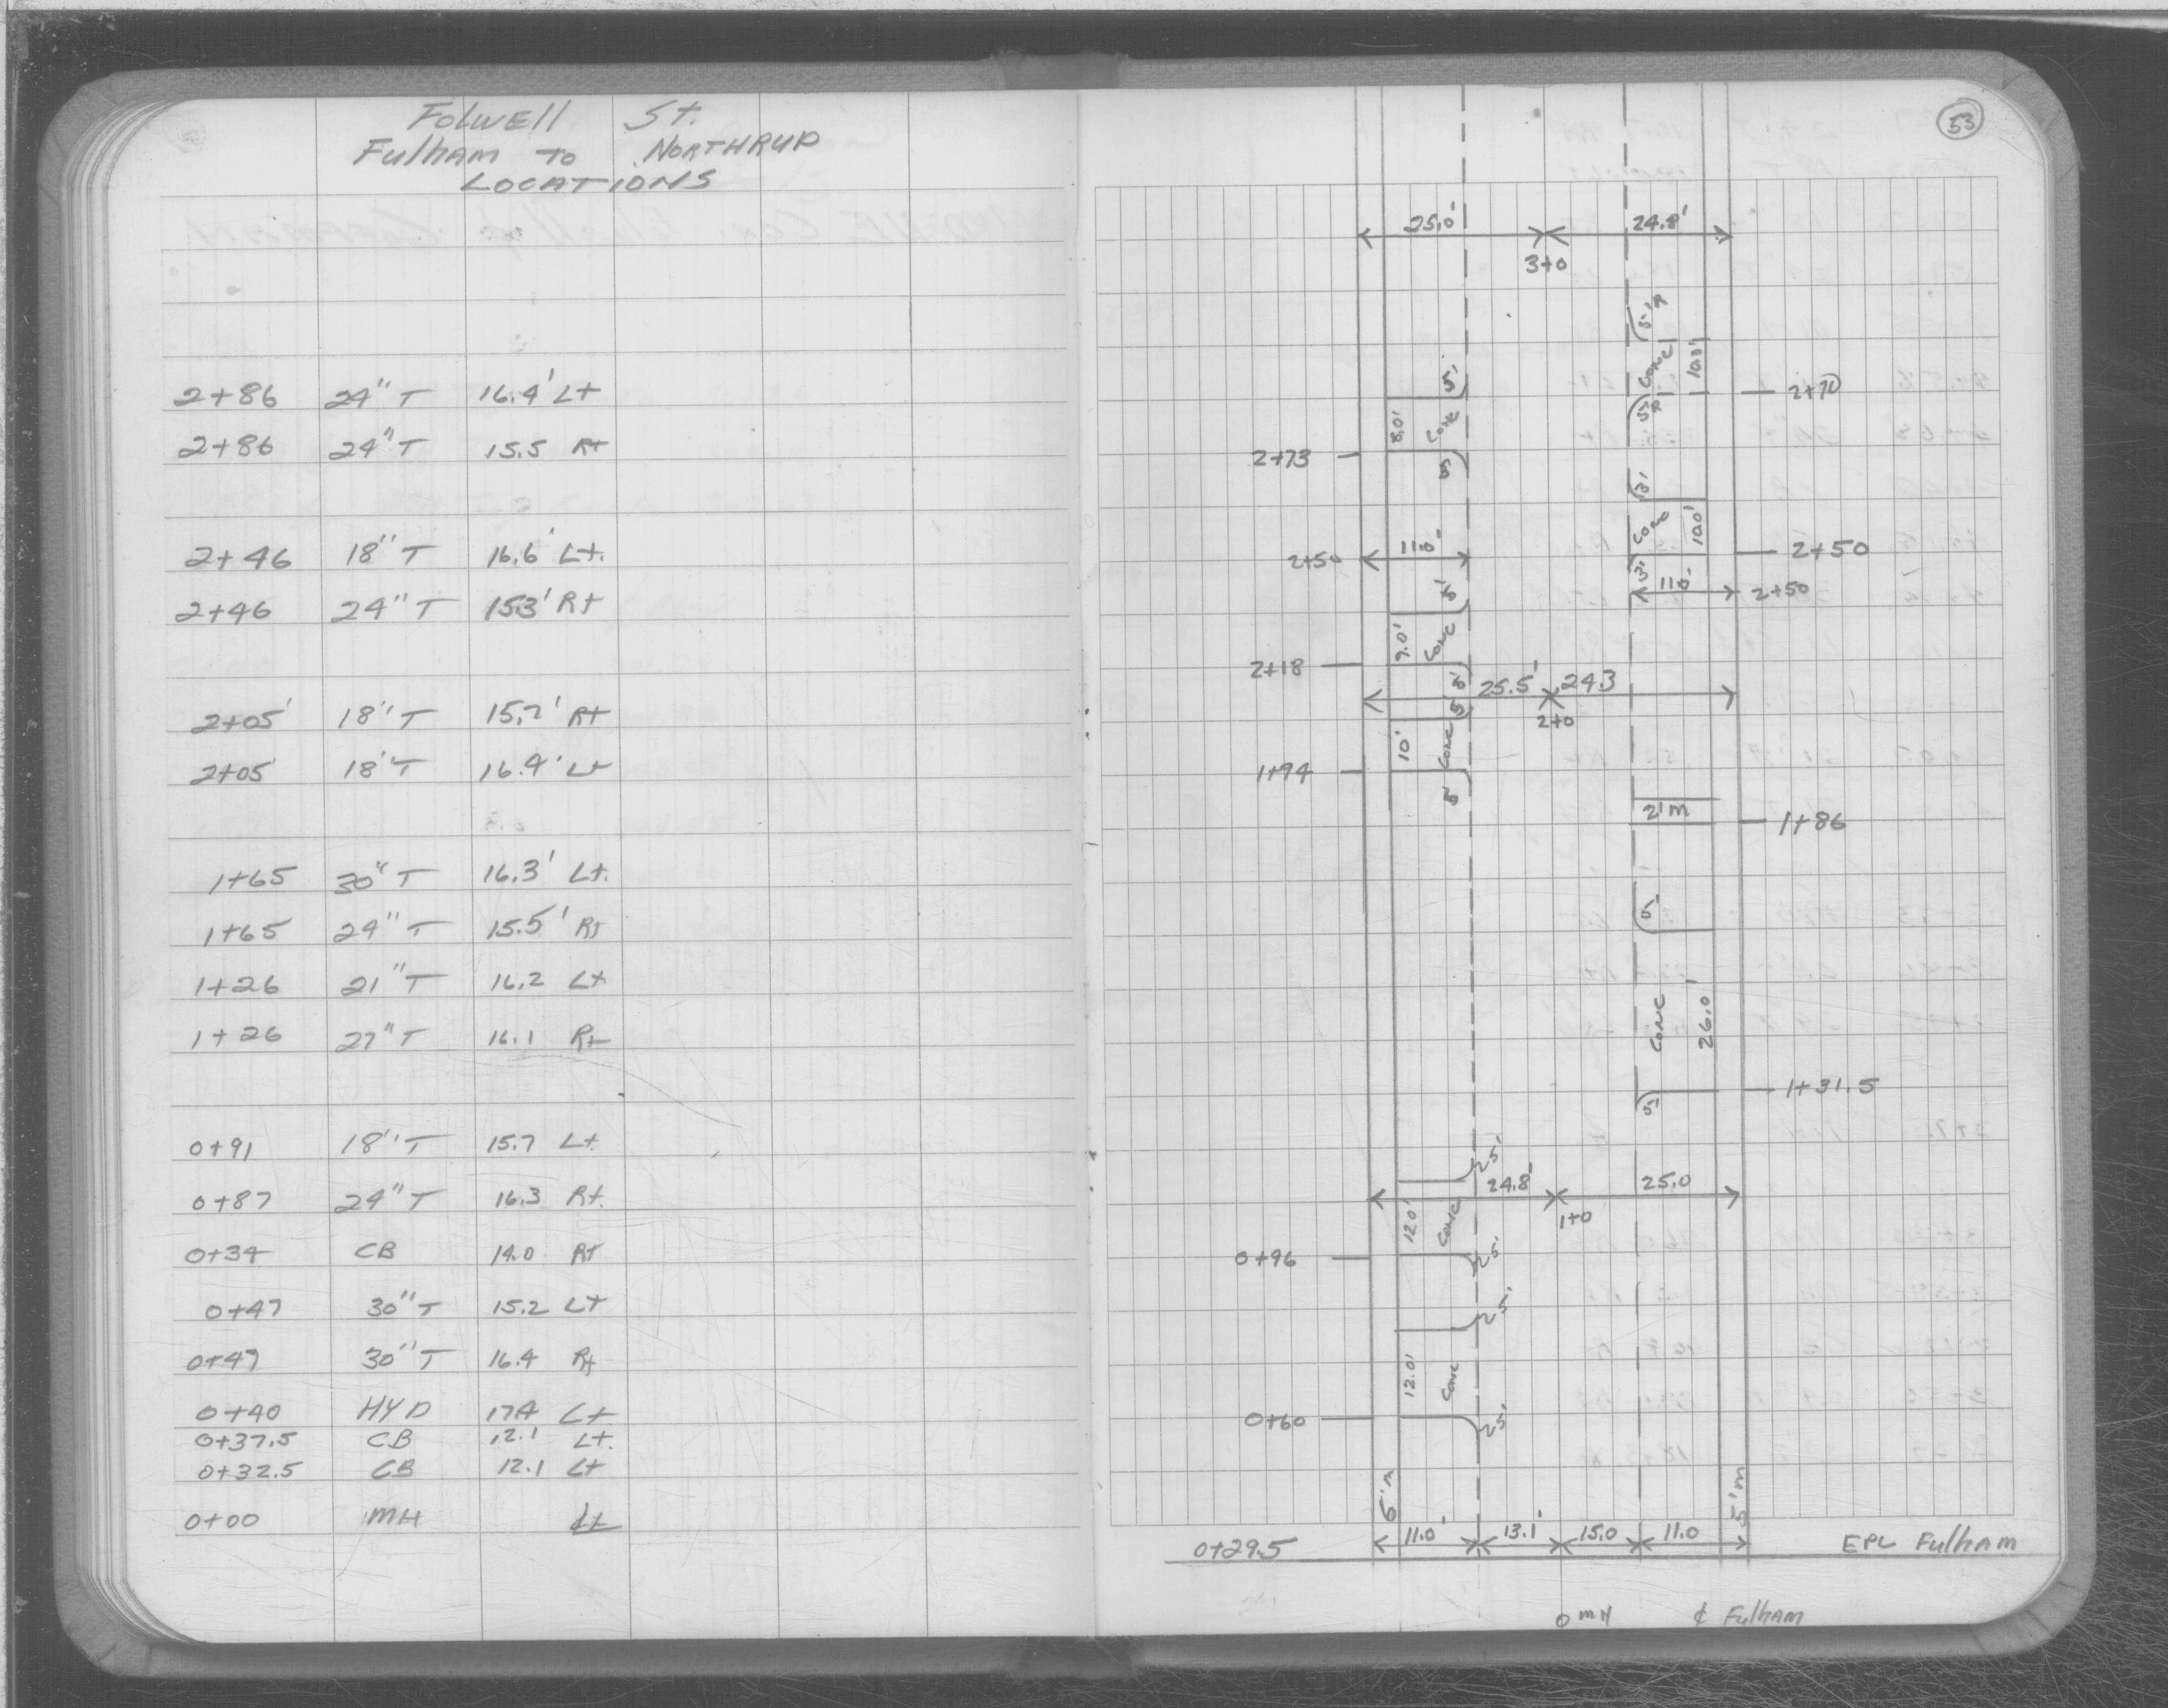 Folwell St.
Fulham to Northrup
Locations
2+86 24" T 16.4' Lt
2+86 24" T 15.5 Rt
2+46 18" T 16.6' Lt.
2+46 24" T 15.3' Rt
2+05' 18" T 15.7' Rt
2+05 18" T 16.4' Lt
1+65 30" T 16.3' Lt.
1+65 24" T 15.5' Rt
1+26 21" T 16.2 Lt
1+26 27" T 16.1 Rt
0+91 18" T 15.7 Lt.
0+87 24" T 16.3 Rt.
0+34 CB 14.0 Rt
0+47 30" T 15.2 Lt
0+47 30" T 16.4 Rt
0+40 HYD 17.4 Lt
0+37.5 CB 12.1 Lt.
0+32.5 CB 12.1 Lt
0+00 MH Lt
53
25.0' 24.8'
3+0
5'R
Conc 10.0'
5' 2+70
8.0' Conc 5'R
2+73 5'
3'
Conc 10.0'
2+50 11.0' 2+50
3' 11.0' 2+50
5'
9.0' Conc
2+18
5' 25.5' 24.3
5' 2+0
10' Conc
1+94
5' 2'm 1+86
5'
Conc 26.0'
1+31.5
5'
2.5'
24.8' 25.0
12.0' Conc 1+0
0+96 2.5'
2.5'
12.0' Conc
0+60 2.5'
6'm 5'm
0+29.5 11.0' 13.1' 15.0 11.0 EPL Fulham
0 MH ₵ Fulham